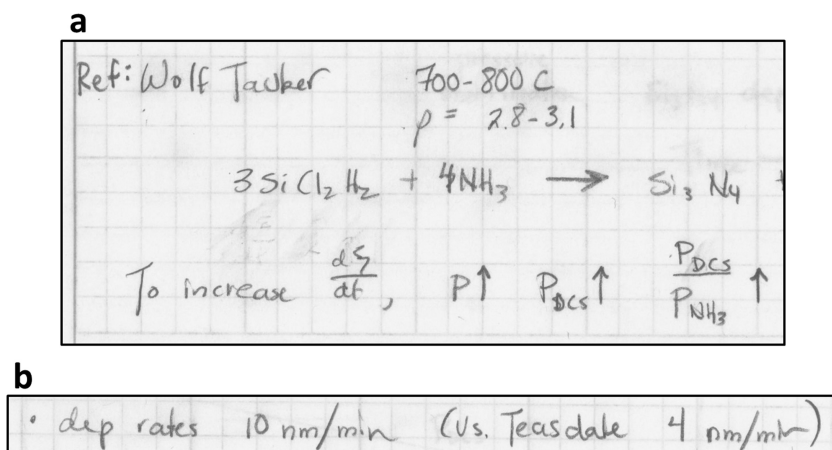 a
Ref: Wolf Tauber 700-800 C
ρ = 2.8-3.1
3SiCl₂H₂ + 4NH₃ → Si₃N₄ +
To increase dζ/dt, P↑ P_DCS↑ P_DCS/P_NH₃ ↑
b
• dep rates 10 nm/min (vs. Teasdale 4 nm/min)